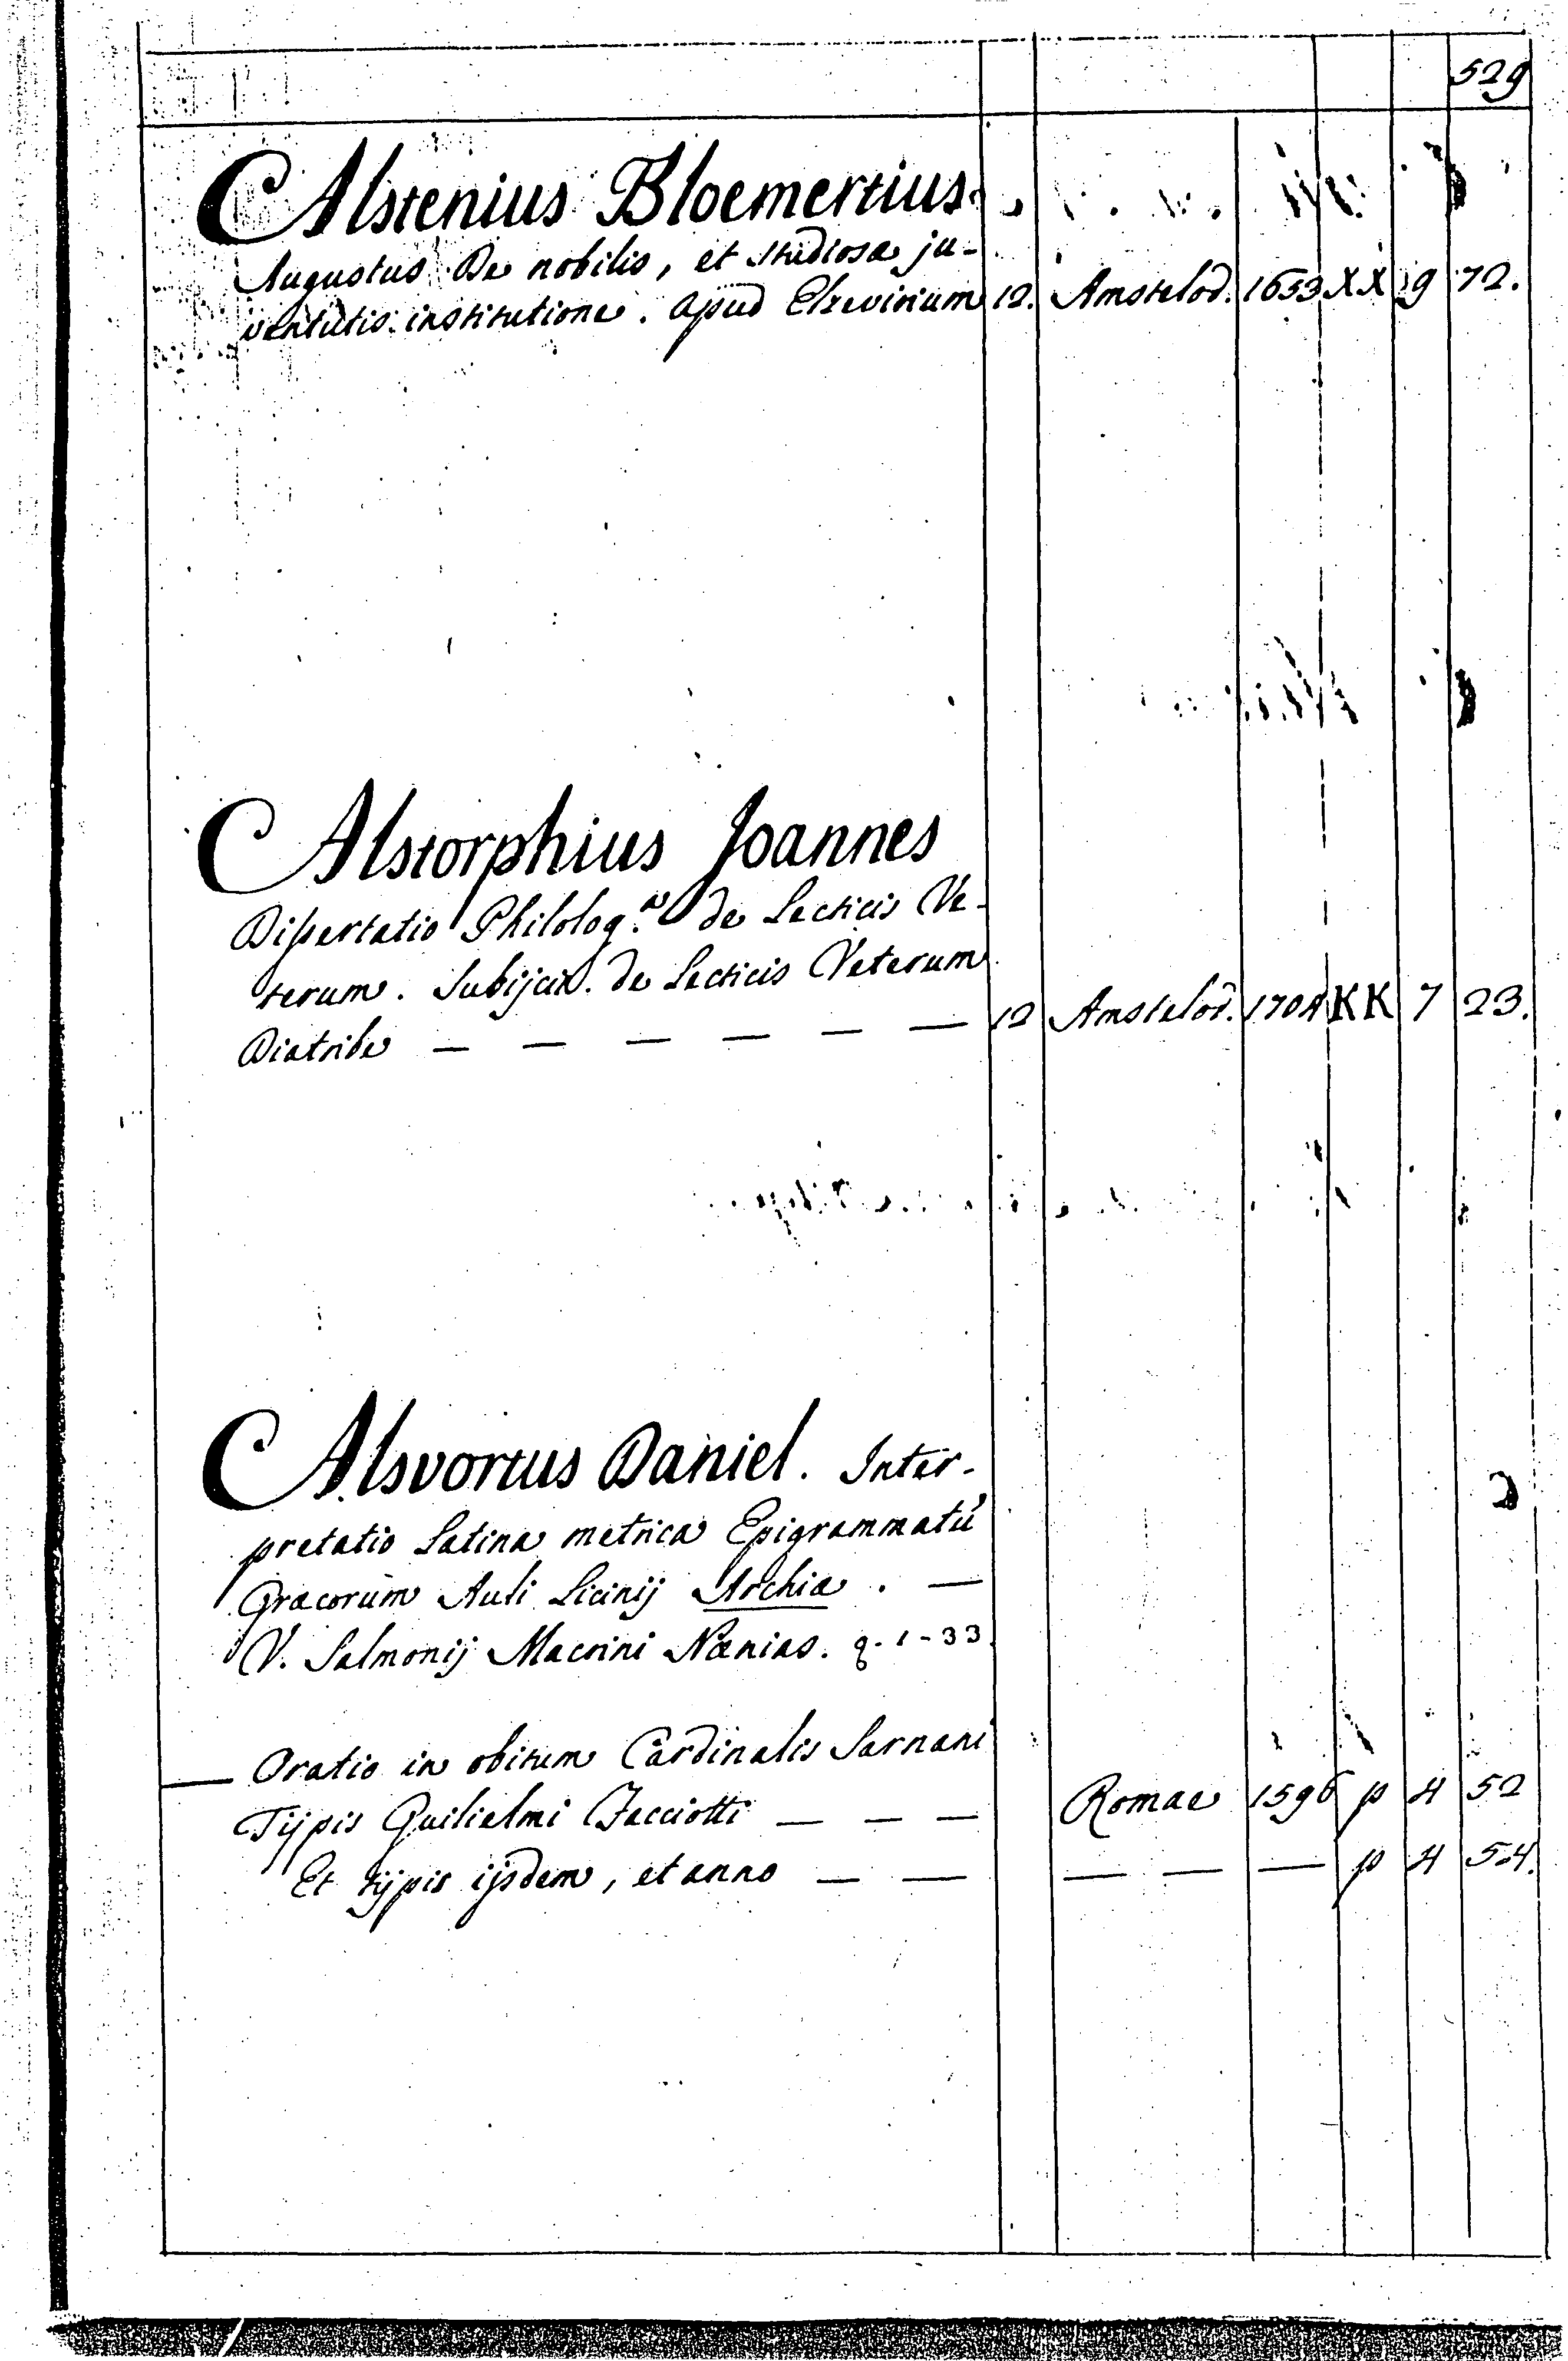 529
Alstenius Bloemertius
Augustus De nobilis, et studiosæ ju-
ventutis institutione. apud Elzevirium 12. Amstelod. 1653 XX 9 72.
Alstorphius Joannes
Dissertatio Philolog.ª de Lecticis Ve-
terum. Subijcit. de Lecticis Veterum
Diatribe — — — — — — 12 Amstelod. 1704 KK 7 23.
Alsvortus Daniel. Inter-
pretatio Latina metrica Epigrammatũ
Græcorum Auli Licinij Archiæ. —
V. Salmonij Macrini Nænias. q. 1-33
— Oratio in obitum Cardinalis Sarnani
Tijpis Guilielmi Facciotti — — — Romae 1596 p 4 52
Et tijpis ijsdem, et anno — — — — — p 4 54.